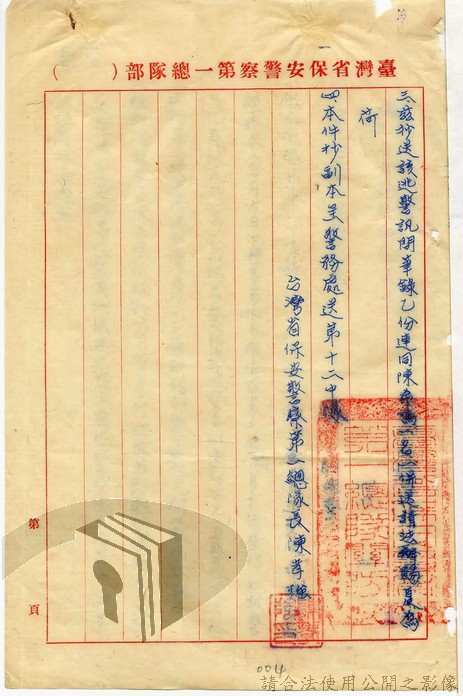 臺灣省保安警察第一總隊部（　　）
三、茲抄送該逃警訊問筆錄乙份連同陳一名一併送請 查辦賜覆為
荷
四、本件抄副本呈警務處送第十二中隊
台灣省保安警察第一總隊長陳孝強
第 頁
004
請合法使用公開之影像